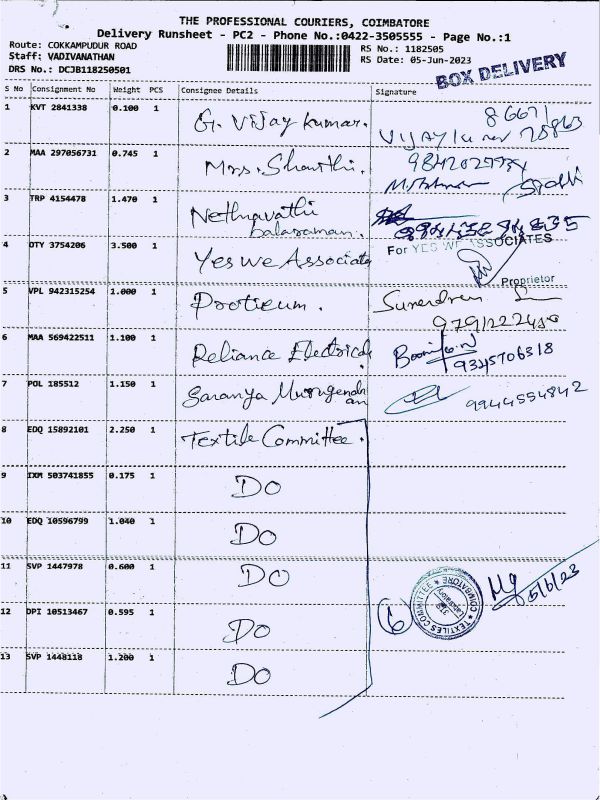 THE PROFESSIONAL COURIERS, COIMBATORE
Delivery Runsheet - PC2 - Phone No.:0422-3505555 - Page No.:1
Route: COKKAMPUDUR ROAD RS No.: 1182505
Staff: VADIVANATHAN RS Date: 05-Jun-2023
DRS No.: DCJB118250501 BOX DELIVERY
S No Consignment No Weight PCS Consignee Details Signature
1 KVT 2841338 0.100 1 G. Vijay kumar. 86671
Vijay
2 MAA 297056731 0.745 1 Mrs. Shanthi.
3 TRP 4154478 1.470 1 Nethravathi
balaraman.
4 OTY 3754206 3.500 1 Yes We Associate For YES WE ASSOCIATES
Proprietor
5 VPL 942315254 1.000 1 Proticum. Surendren
6 MAA 569422511 1.100 1 Reliance Electrical. 9345706318
7 POL 185512 1.150 1 Saranya Murugendran 9944554842
8 EDQ 15892101 2.250 1 Textile Committee.
9 IXM 503741855 0.175 1 Do
10 EDQ 10596799 1.040 1 Do
11 SVP 1447978 0.600 1 Do
12 DPI 10513467 0.595 1 Do 6 TEXTILES COMMITTEE COIMBATORE 5/6/23
13 SVP 1448118 1.200 1 Do